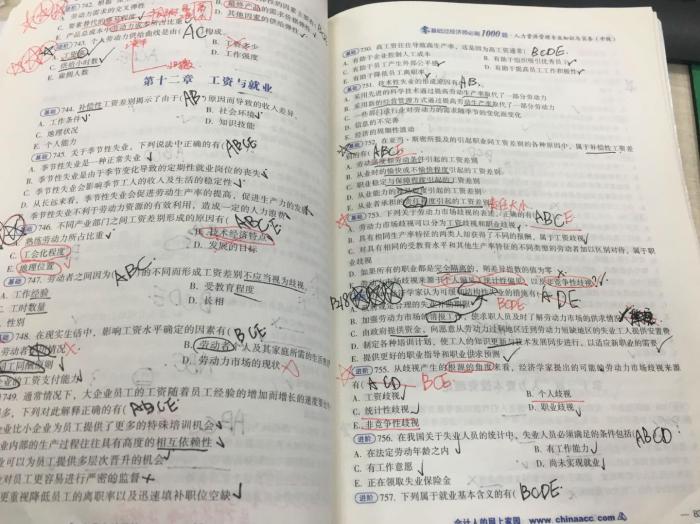 第十二章 工资与就业
744. 补偿性工资差别揭示了由于(AB)原因而导致的收入差异。
A. 工作条件
B. 社会环境
C. 地理状况
D. 知识技能
E. 个人能力
745. 关于季节性失业,下列说法中正确的有(ABCE
A. 季节性失业是一种正常失业
B. 季节性失业是由于季节变化导致的定期性就业岗位的丧失
C. 季节性失业会影响季节工人的收入及生活的稳定性
D. 从长远来看,季节性失业会促进劳动生产率的提高,促进生产力的发展
季节性失业不利于劳动力资源的有效利用,造成一定的人力浪费
746. 不同产业部门之间工资差别形成的原因有(ABCE
熟练劳动所占比重
B. 技术经济特点
C. 工会化程度
D. 发展的目标
E. 地理位置
747. 劳动者之间因为(ABC)的不同而形成工资差别不应当视为歧视
A. 工作经验
B. 受教育程度
C. 工时数量
D. 长相
性别
748. 在现实生活中,影响工资水平确定的因素有(BCE
B. 劳动者个人及其家庭所需的生活费
同工同酬原则
D. 劳动力市场的现状
业的工资支付能力
749. 通常情况下,大企业员工的工资随着员工经验的增加而增长的速度
下列对此解释正确的有(ABCE
业比小企业为员工提供了更多的特殊培训机会
业内部的生产过程往往具有高度的相互依赖性
业可以为员工提供多层次晋升的机会
对员工更容易进行严密的监督
更重视降低员工的离职率以及迅速填补职位空缺
零基础过经济师必刷1000题·人力资源管理专业知识与实务(中级)
750. 高工资往往导致高生产率,这是因为高工资通常(BCDE
A. 有助于企业控制人工成本
B. 有助于组织吸引优秀员工
C. 有助于员工产生外部公平感
D. 有助于提高员工工作积极性
E. 有助于降低员工离职率
751. 技术性失业的形成原因有(AB
A. 采用先进的科学技术通过提高劳动生产率取代了一部分劳动力
B. 采用新的经营管理方式通过提高劳动生产率取代了一部分劳动力
C. 一些部门或行业对劳动力的需求随季节的变化而变化
D. 信息的不完善
E. 经济的周期性波动
752. 在亚当·斯密所提及的引起职业间工资差别的各种原因中,属于补偿性工资差别的有(ABCE
A. 劳动强度和劳动条件引起的工资差别
B. 从业时的愉快或不愉快程度引起的工资差别
C. 职业稳定与保障程度引起的工资差别
E. 从业者承担的责任程度引起的工资差别
责任大小
753. 下列关于劳动力市场歧视的表述,正确的有(ABCE
A. 劳动力市场歧视可以分为工资歧视和职业歧视
B. 具有相同生产率特征的两类人却获得了不同的报酬,属于工资歧视
C. 对具有相同的受教育水平和其他生产率特征的不同类型的劳动者加以区别对待,属于职业歧视
D. 如果所有的职业都是完全隔离的,则差异指数的值为零
BCDE
ADE
B. 加强劳动力市场的情报工作,使求职人员及时了解劳动力市场的供求情况
C. 由政府提供资金,向愿意从劳动力过剩地区迁到劳动力短缺地区的失业工人提供安置费
D. 制定各种培训计划,使工人的知识更新与技术发展同步进行,以适应新职业的需要
E. 提供更好的职业指导和职业供求预测
755. 从歧视产生的根源的角度来看,经济学家提出的可能的劳动力市场歧视来源有(ACD
BCE
A. 工资歧视
B. 个人歧视
C. 统计性歧视
D. 职业歧视
E. 非竞争性歧视
756. 在我国关于失业人员的统计中,失业人员必须满足的条件包括(ABCD
A. 在法定劳动年龄之内
B. 有工作能力
C. 有工作意愿
D. 尚未实现就业
E. 正在领取失业保险金
757. 下列属于就业基本含义的有(BCDE
会计人的网上家园 www.chinaacc.com